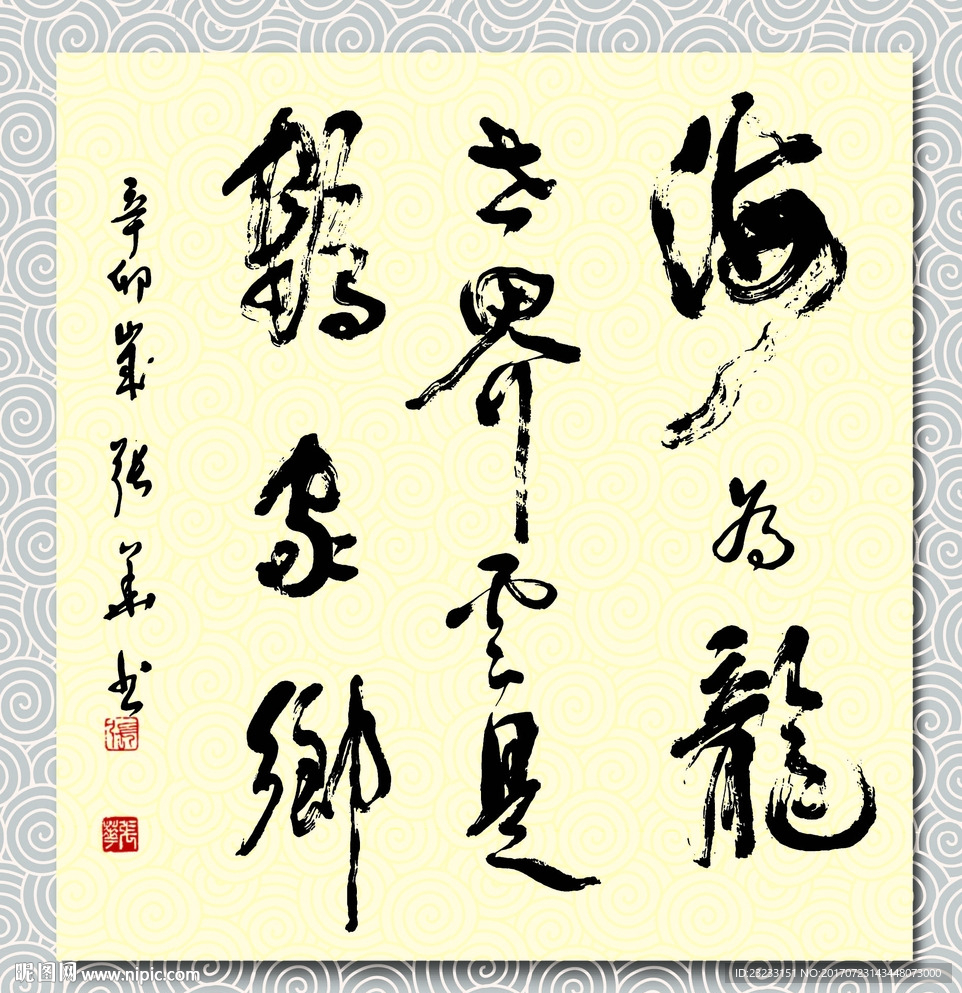 海为龍
世界雲是
鶴家鄉
辛卯歲張華书
張
張華
昵图网 www.nipic.com
ID:23233151 NO:20170723143448073000